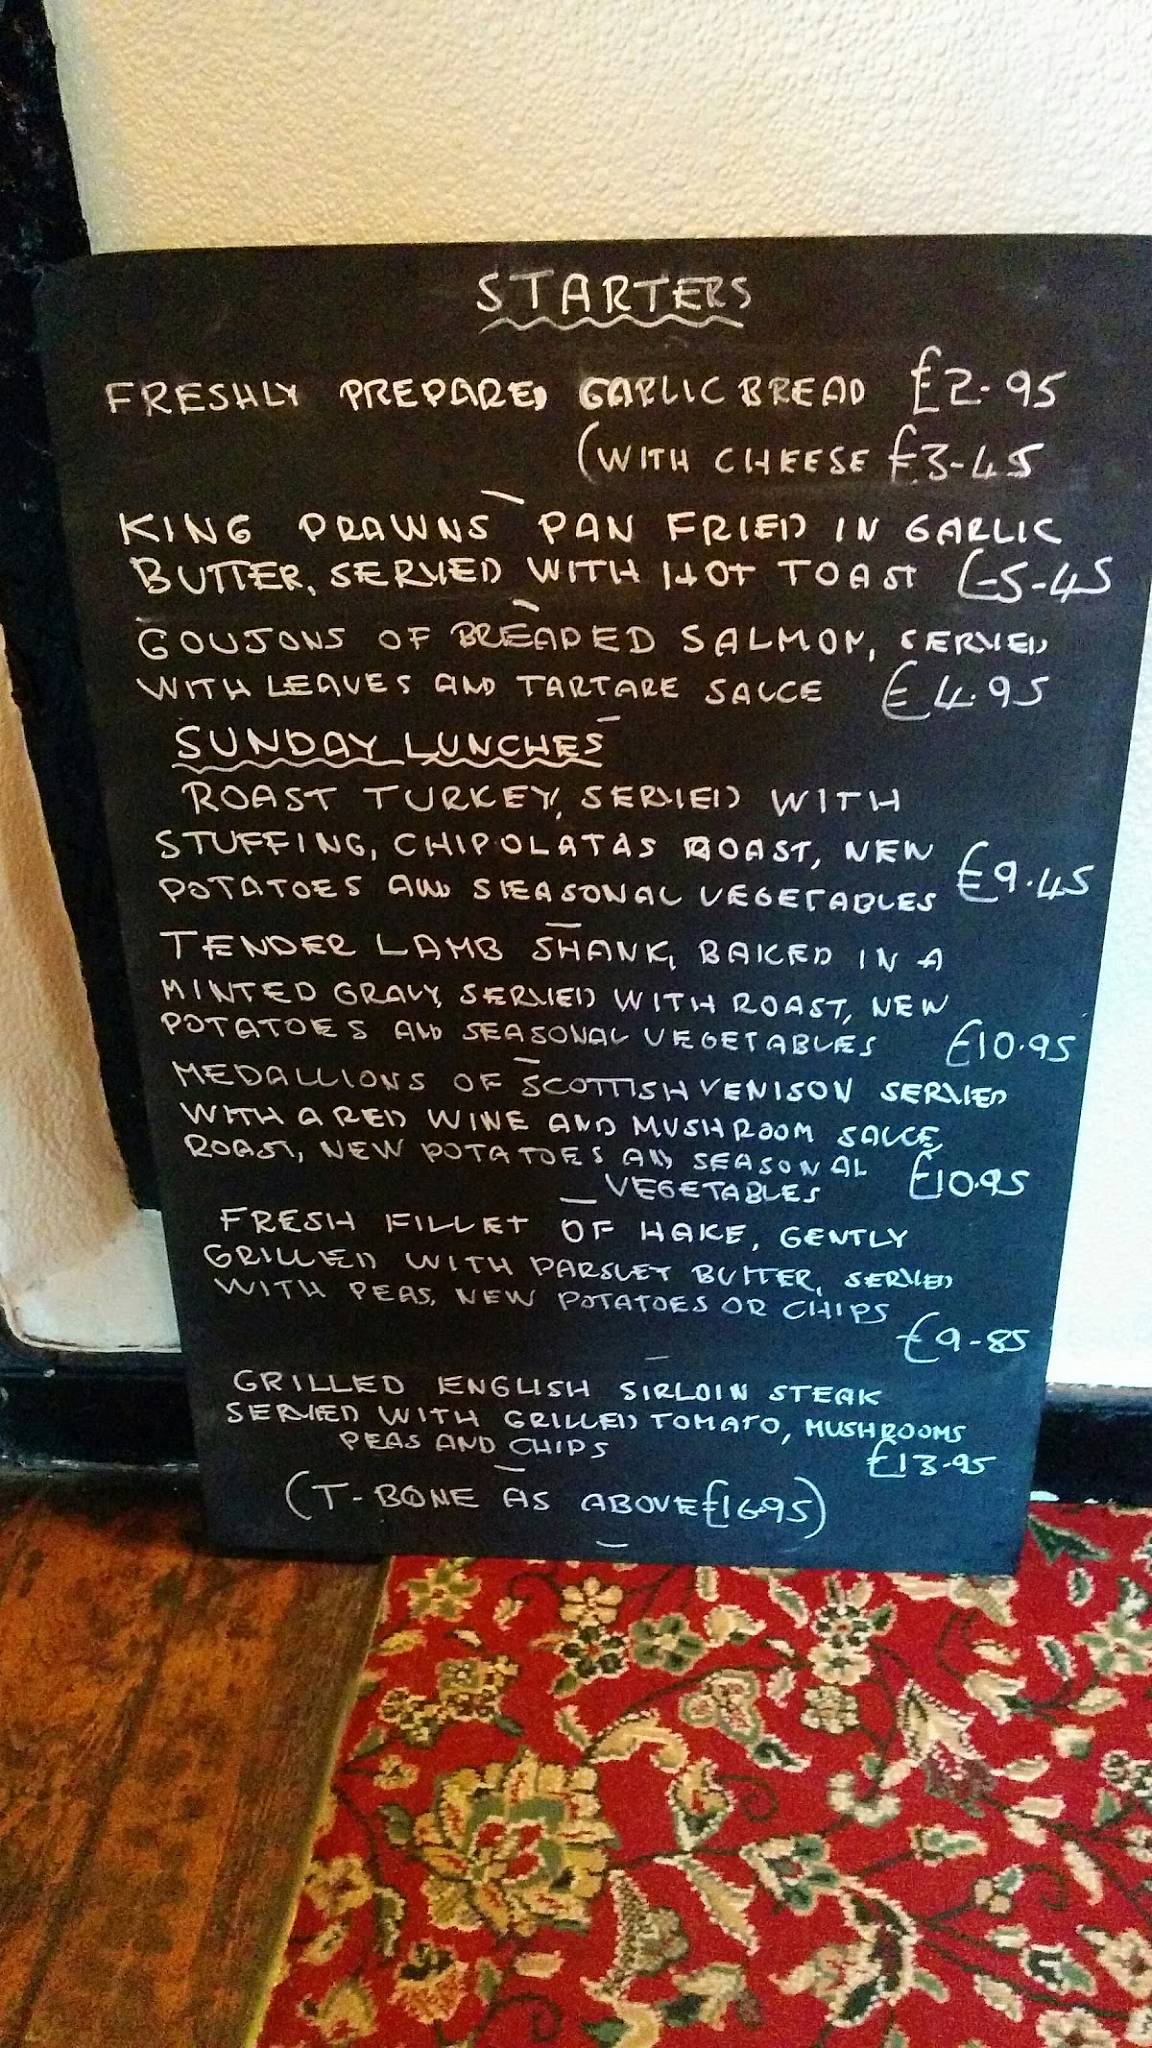 STARTERS
FRESHLY PREPARED GARLIC BREAD £2-95
(WITH CHEESE £3-45
KING PRAWNS PAN FRIED IN GARLIC
BUTTER, SERVED WITH HOT TOAST £5-45
GOUJONS OF BREADED SALMON, SERVED
WITH LEAVES AND TARTARE SAUCE £4.95
SUNDAY LUNCHES
ROAST TURKEY, SERVED WITH
STUFFING, CHIPOLATAS ROAST, NEW
POTATOES AND SEASONAL VEGETABLES £9.45
TENDER LAMB SHANK, BAKED IN A
MINTED GRAVY, SERVED WITH ROAST, NEW
POTATOES AND SEASONAL VEGETABLES £10.95
MEDALLIONS OF SCOTTISH VENISON SERVED
WITH A RED WINE AND MUSHROOM SAUCE,
ROAST, NEW POTATOES AND SEASONAL
VEGETABLES £10.95
FRESH FILLET OF HAKE, GENTLY
GRILLED WITH PARSLEY BUTTER, SERVED
WITH PEAS, NEW POTATOES OR CHIPS
£9-85
GRILLED ENGLISH SIRLOIN STEAK
SERVED WITH GRILLED TOMATO, MUSHROOMS
PEAS AND CHIPS £13.95
(T-BONE AS ABOVE £16.95)